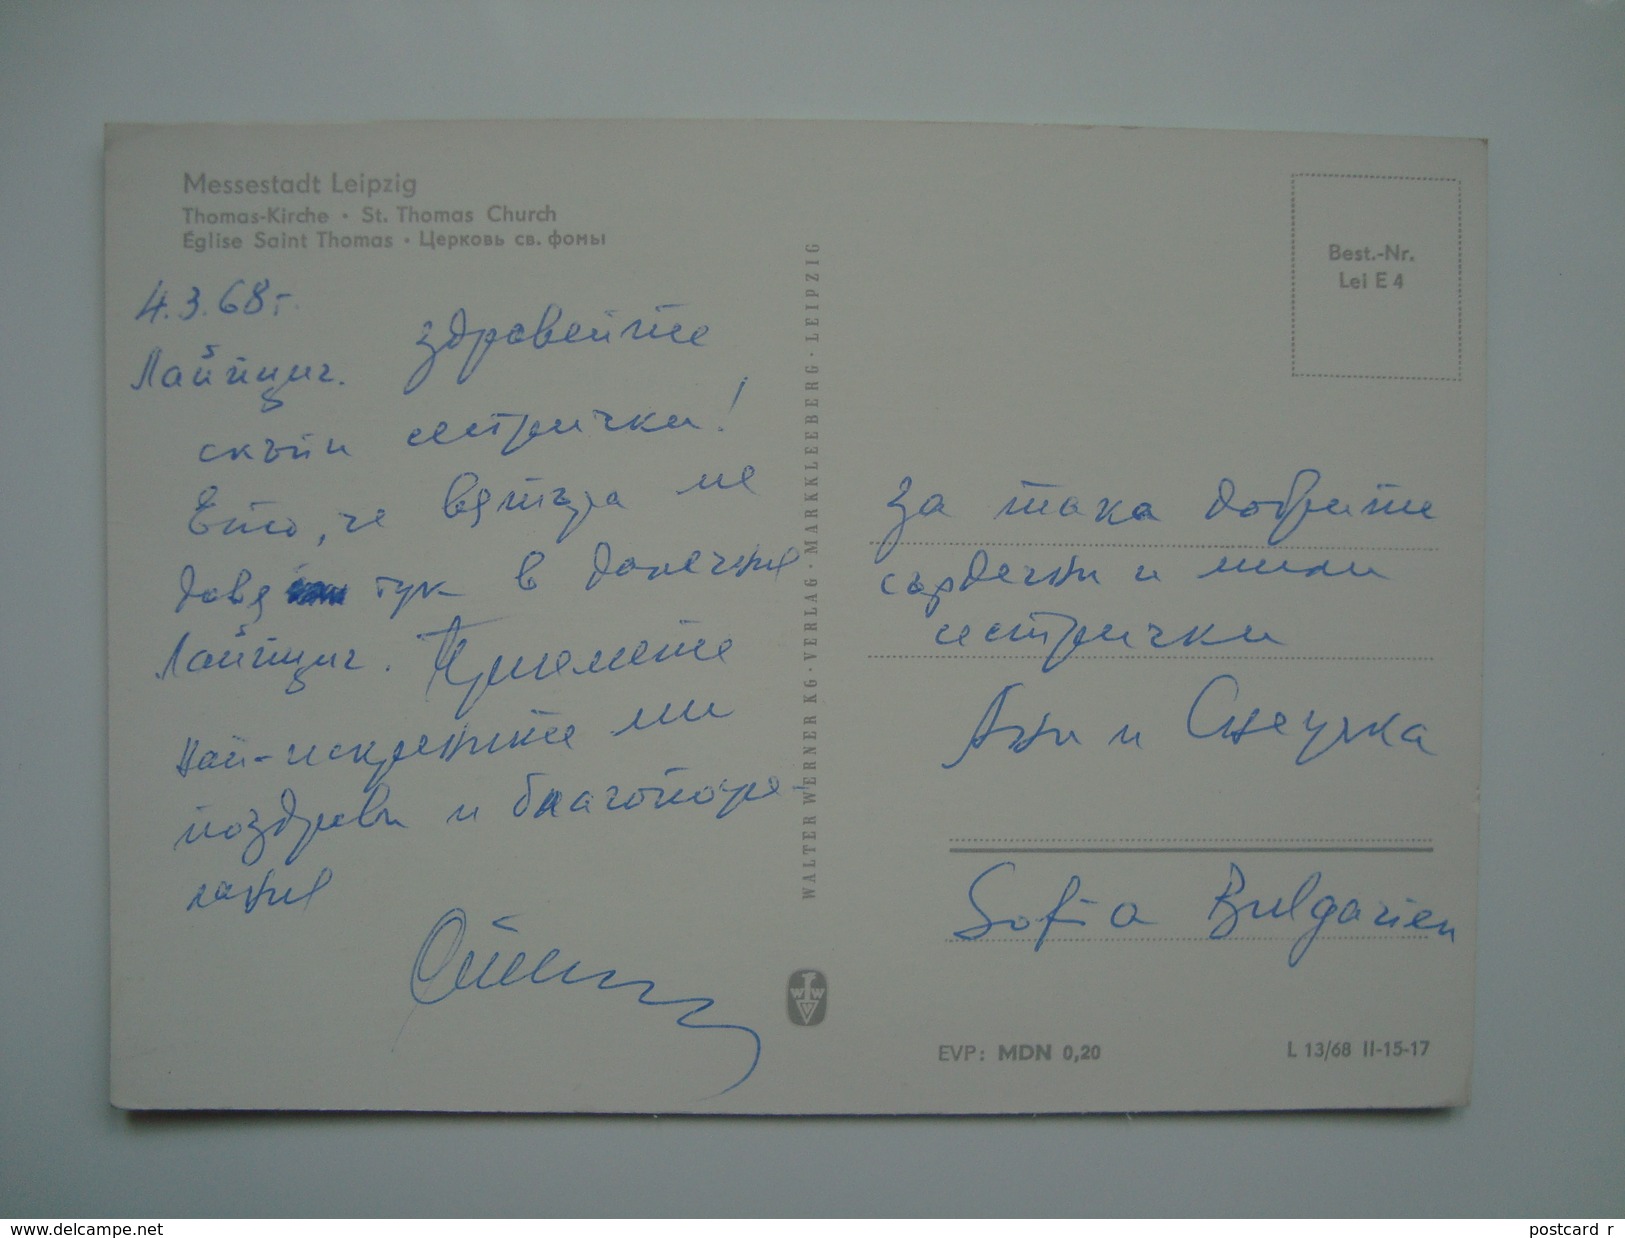 Messestadt Leipzig
Thomas-Kirche · St. Thomas Church
Église Saint Thomas · Церковь св. фомы
4.3.68г.
Лайпциг.
здравейте
скъпи сестрички!
Ето, че вятъра ме
довя тук в далечния
Лайпциг. Приемете
най-искрените ми
поздрави и благопоже-
лания
WALTER WERNER KG · VERLAG · MARKKLEEBERG · LEIPZIG
Best.-Nr.
Lei E 4
За така добрите
сърдечни и мили
сестрички
Ани и Снежка
Sofia Bulgarien
EVP: MDN 0,20
L 13/68 II-15-17
www.delcampe.net
postcard_r